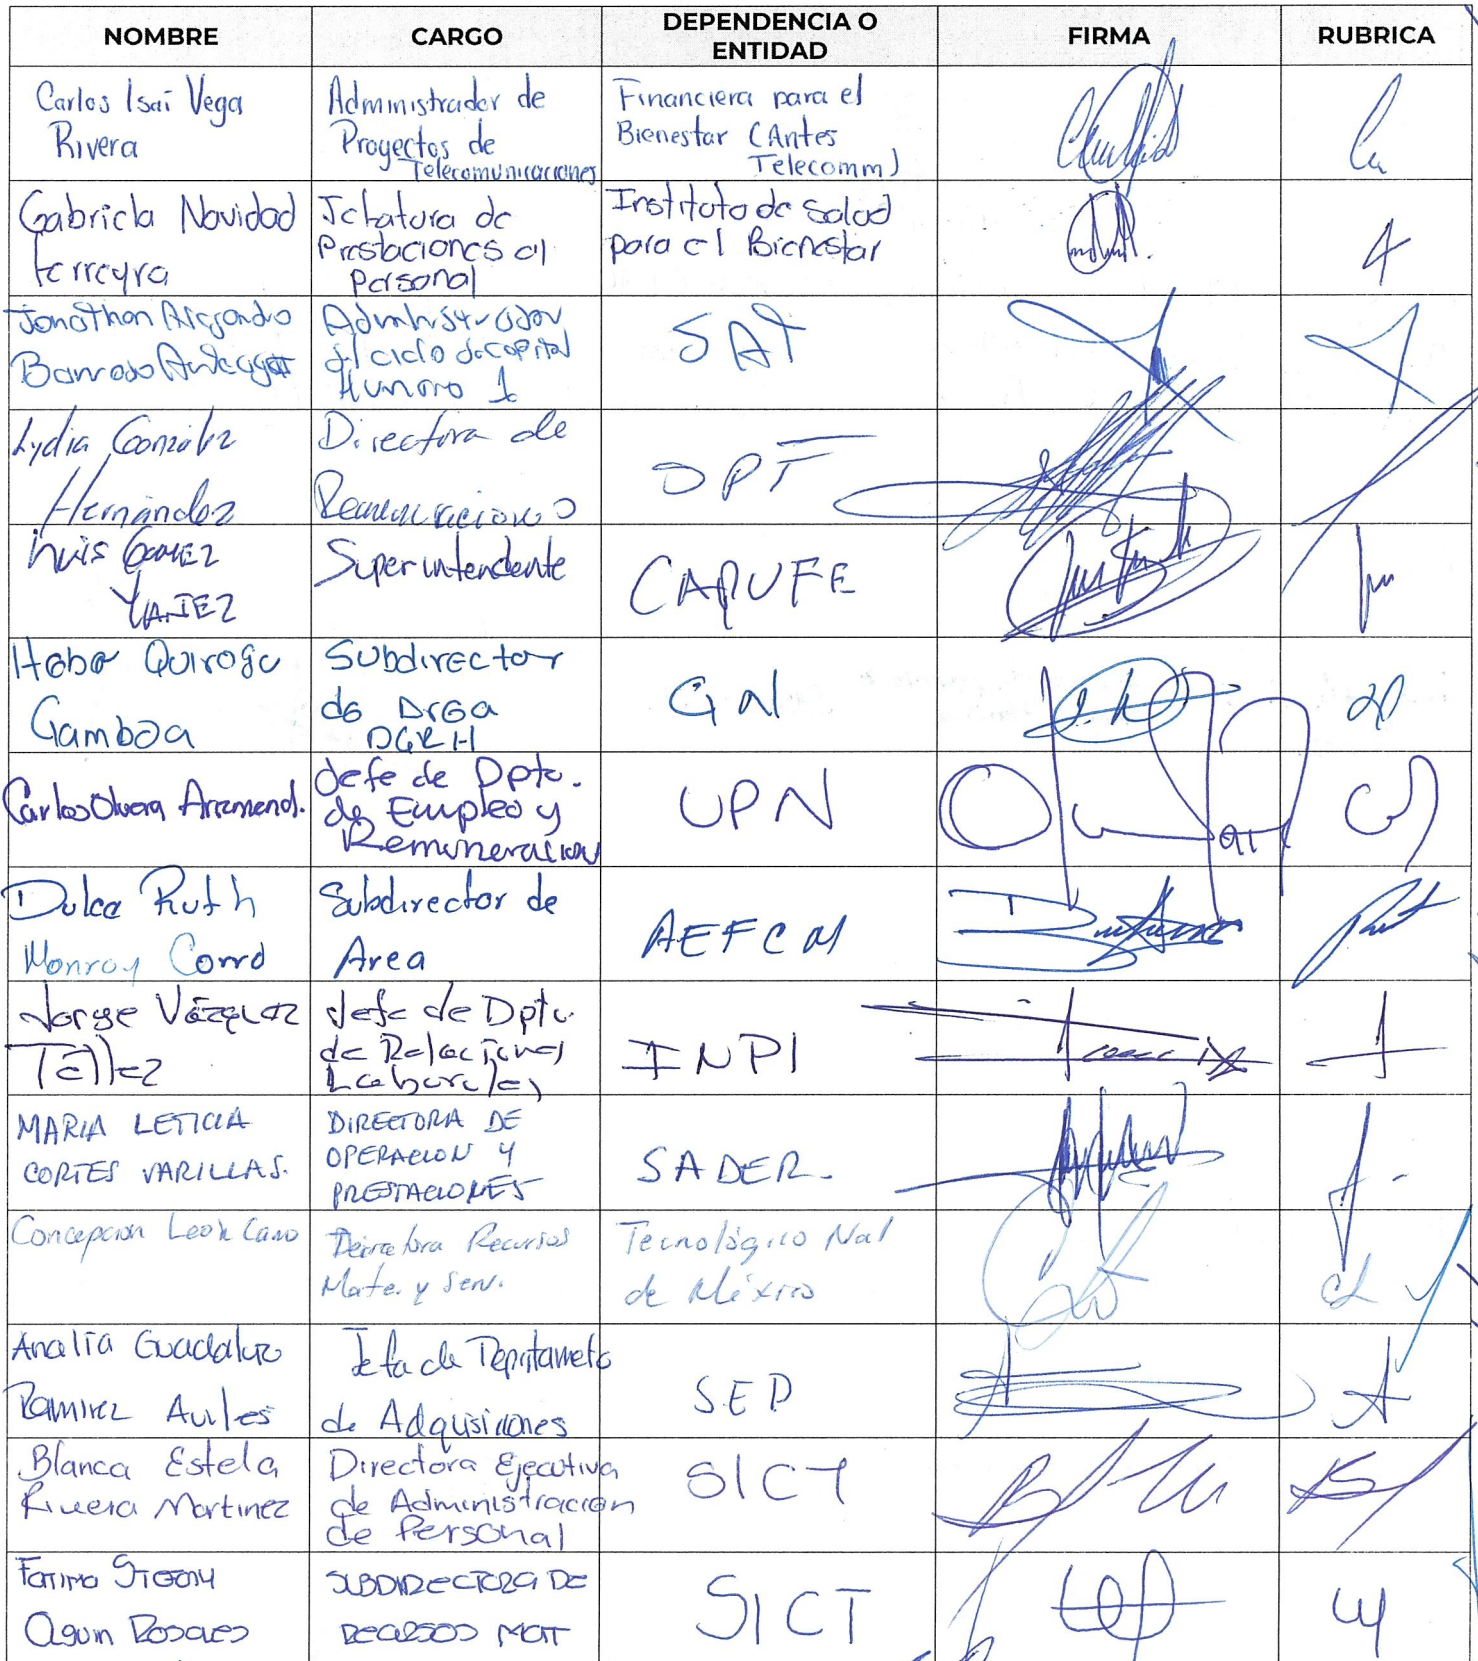 NOMBRE CARGO DEPENDENCIA O ENTIDAD FIRMA RUBRICA
Carlos Isaí Vega
Rivera
Administrador de
Proyectos de
Telecomunicaciones
Financiera para el
Bienestar (Antes
Telecomm)
Gabriela Navidad
Ferreyra
Jefatura de
Prestaciones al
personal
Instituto de Salud
para el Bienestar
Jonathan Alejandro
Administrador
del ciclo de capital
Humano 1
SAT
Lydia González
Hernández
Directora de
Remuneraciones
OPT
Luis Gomez
Yañez
Superintendente
CAPUFE
Quiroga
Gamboa
Subdirector
de Area
DGRH
GN
Carlos Olvera
Jefe de Dpto.
de Empleo y
Remuneracion
UPN
Dulce Ruth
Monroy
Subdirector de
Area
AEFCM
Jorge Vázquez
Téllez
Jefe de Dpto.
de Relaciones
Laborales
INPI
MARIA LETICIA
CORTES VARILLAS.
DIRECTORA DE
OPERACION Y
PRESTACIONES
SADER.
Concepcion Leon Cano
Directora Recursos
Mate. y Serv.
Tecnológico Nal
de México
Analia Guadalupe
Ramirez Aviles
Jefa de Departameto
de Adquisiciones
SEP
Blanca Estela
Rivera Martinez
Directora Ejecutiva
de Administracion
de Personal
SICT
Fatima
Rosales
SUBDIRECTORA DE
RECURSOS MAT
SICT